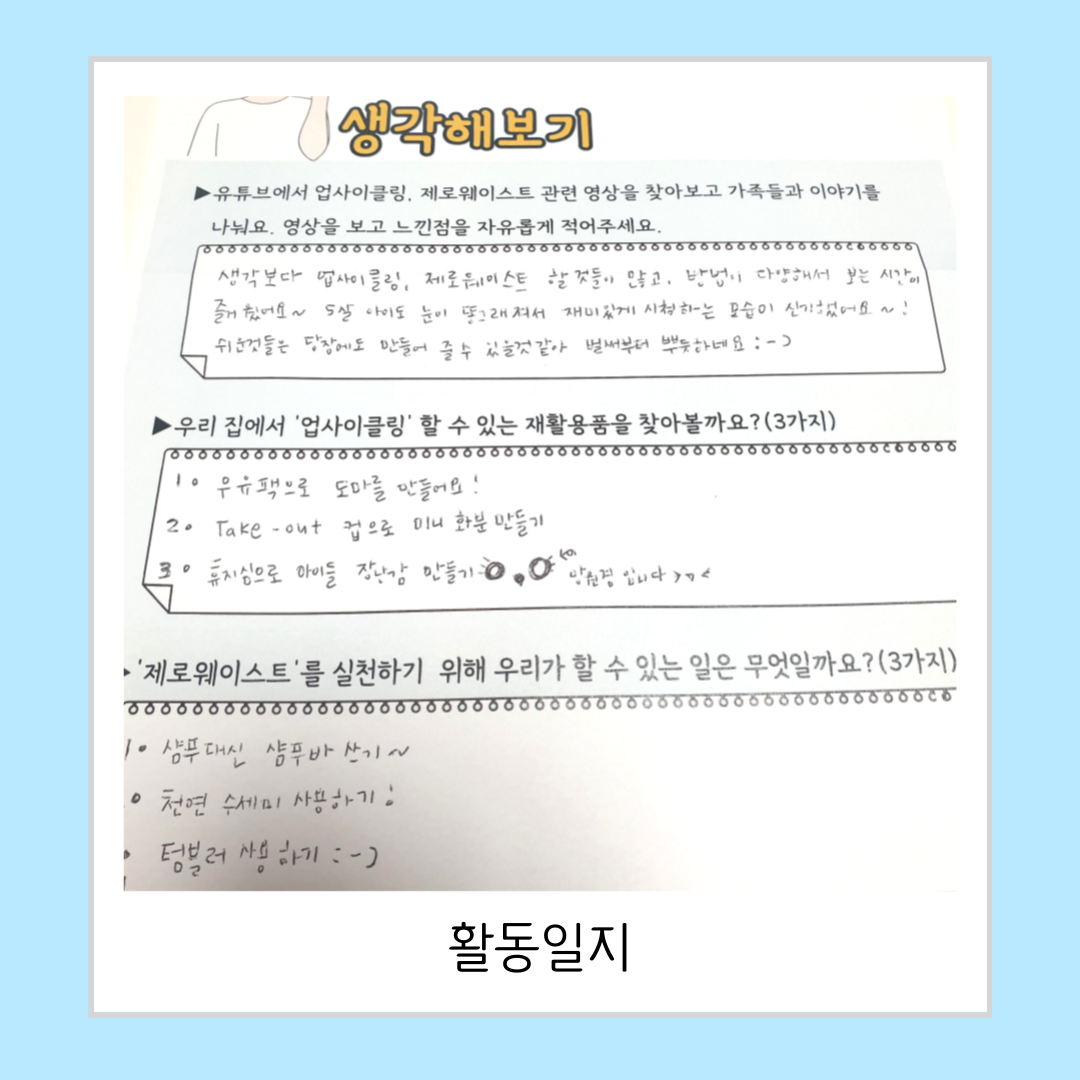 생각해보기
▶유튜브에서 업사이클링, 제로웨이스트 관련 영상을 찾아보고 가족들과 이야기를
나눠요. 영상을 보고 느낀점을 자유롭게 적어주세요.
생각보다 업사이클링, 제로웨이스트 할 것들이 많고, 방법이 다양해서 보는 시간이
즐거웠어요~ 5살 아이도 눈이 똥그래져서 재미있게 시청하는 모습이 신기했어요~!
쉬운것들은 당장에도 만들어 줄 수 있을것같아 벌써부터 뿌듯하네요 :-)
▶우리 집에서 '업사이클링' 할 수 있는 재활용품을 찾아볼까요?(3가지)
1. 우유팩으로 도마를 만들어요!
2. Take-out 컵으로 미니 화분 만들기
3. 휴지심으로 아이들 장난감 만들기 망원경 입니다 >.<
▶'제로웨이스트'를 실천하기 위해 우리가 할 수 있는 일은 무엇일까요?(3가지)
1. 샴푸대신 샴푸바 쓰기~
. 천연 수세미 사용하기!
. 텀블러 사용하기 :-)
활동일지